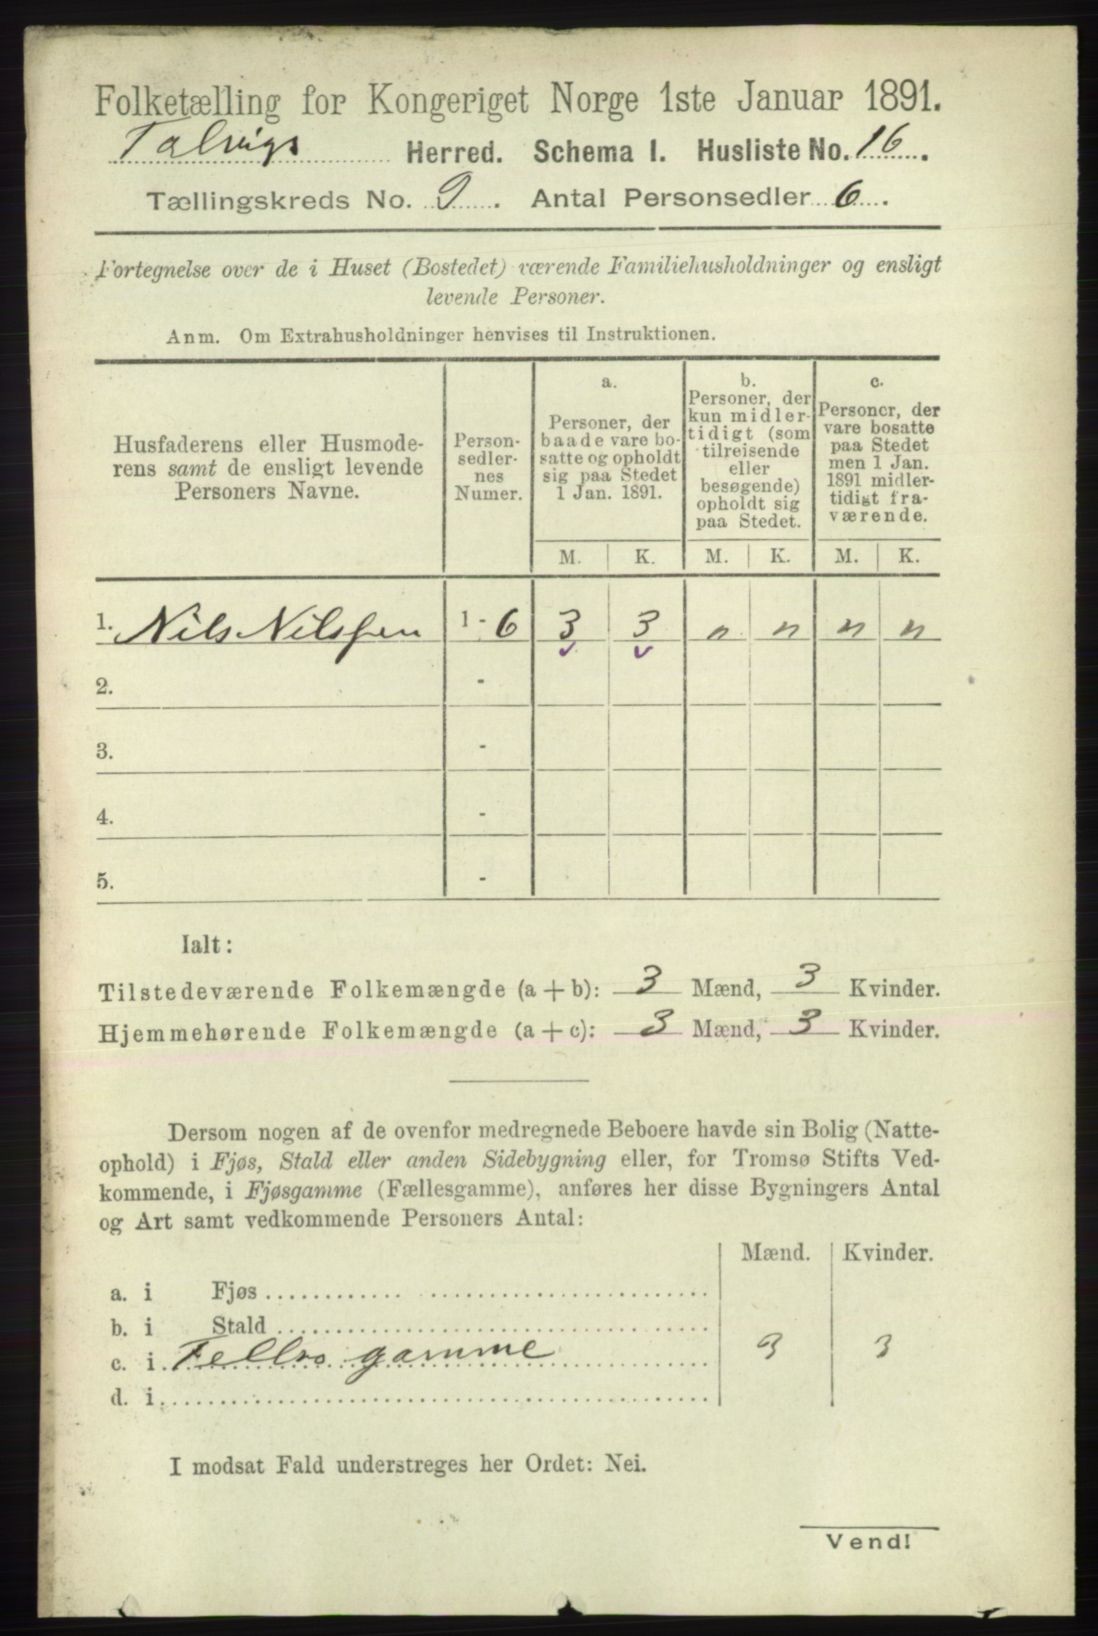 Folketælling for Kongeriget Norge 1ste Januar 1891.
Talvigs Herred. Schema I. Husliste No. 16.
Tællingskreds No. 9. Antal Personsedler 6.
Fortegnelse over de i Huset (Bostedet) værende Familiehusholdninger og ensligt
levende Personer.
Anm. Om Extrahusholdninger henvises til Instruktionen.
Husfaderens eller Husmode-
rens samt de ensligt levende
Personers Navne.
Person-
sedler-
nes
Numer.
a.
Personer, der
baade vare bo-
satte og opholdt
sig paa Stedet
1 Jan. 1891.
b.
Personer, der
kun midler-
tidigt (som
tilreisende
eller
besøgende)
opholdt sig
paa Stedet.
c.
Personer, der
vare bosatte
paa Stedet
men 1 Jan.
1891 midler-
tidigt fra-
værende.
M. K. M. K. M. K.
1. Nils Nilssen 1 - 6 3 3 " " " "
2. -
3. -
4. -
5. -
Ialt:
Tilstedeværende Folkemængde (a + b): 3 Mænd, 3 Kvinder.
Hjemmehørende Folkemængde (a + c): 3 Mænd, 3 Kvinder.
Dersom nogen af de ovenfor medregnede Beboere havde sin Bolig (Natte-
ophold) i Fjøs, Stald eller anden Sidebygning eller, for Tromsø Stifts Ved-
kommende, i Fjøsgamme (Fællesgamme), anføres her disse Bygningers Antal
og Art samt vedkommende Personers Antal:
Mænd. Kvinder.
a. i Fjøs
b. i Stald
c. i Fells gamme 3 3
d. i
I modsat Fald understreges her Ordet: Nei.
Vend!